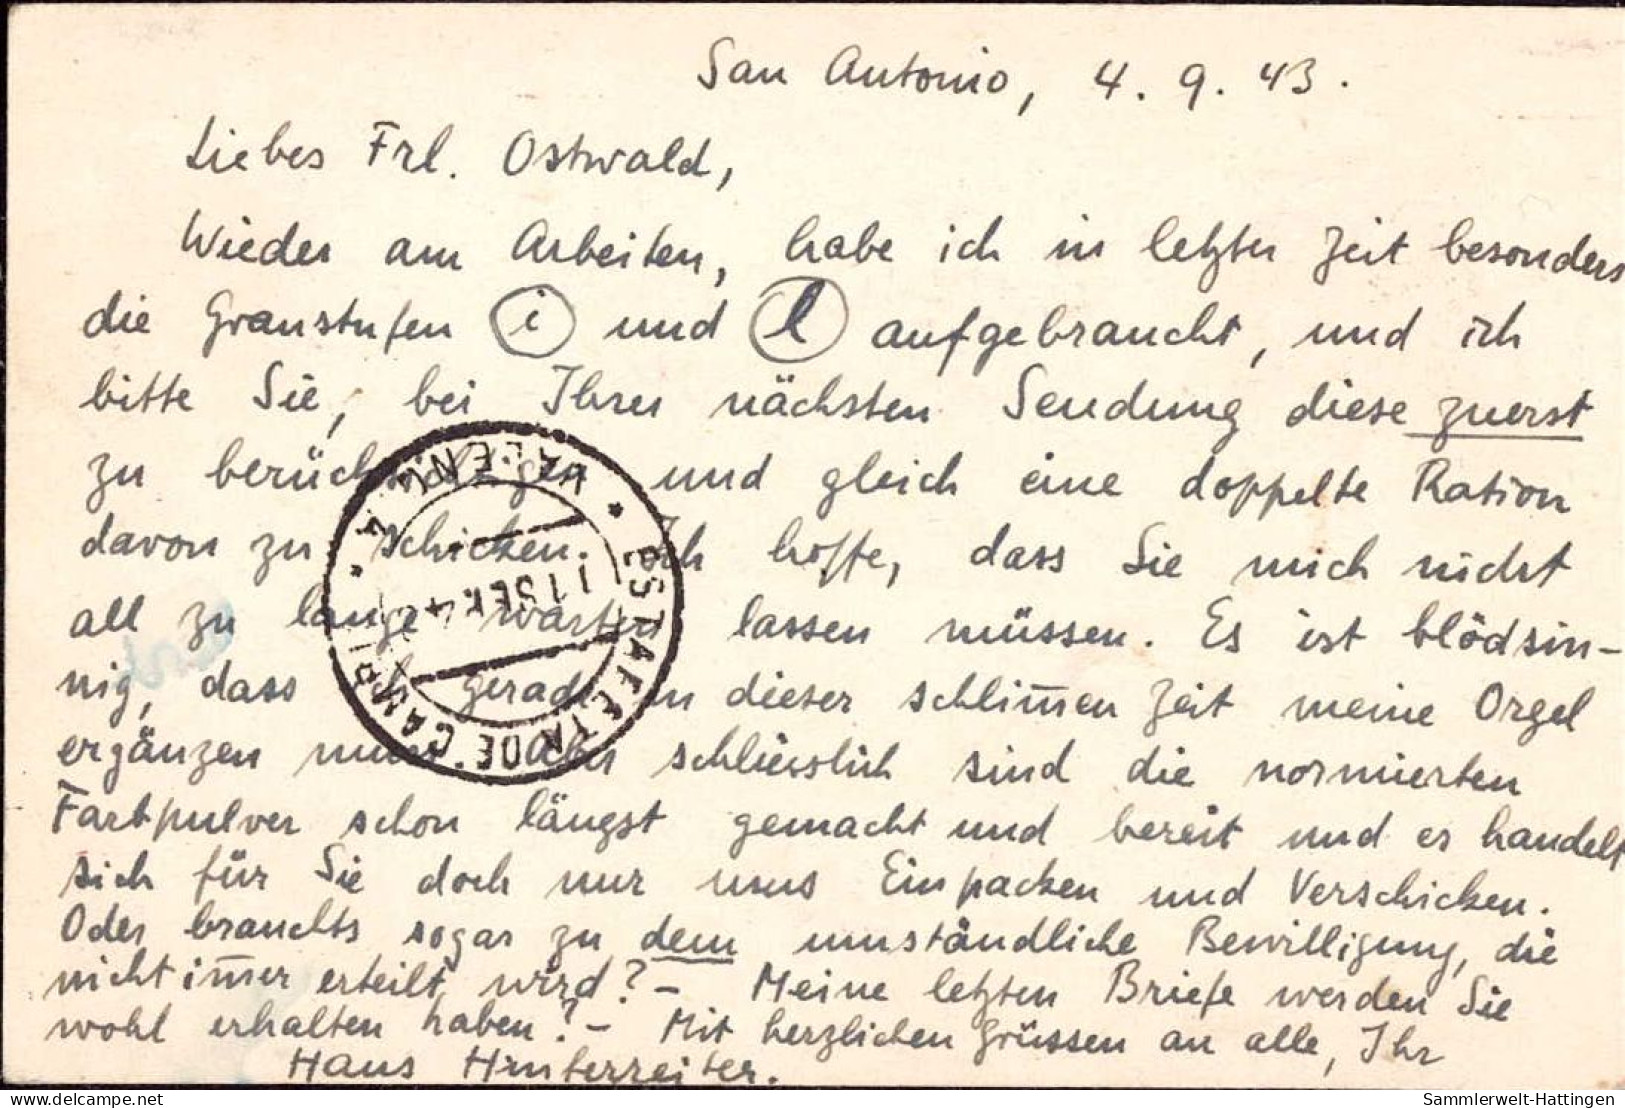 San Antonio, 4. 9. 43.
Liebes Frl. Ostwald,
Wieder am Arbeiten, habe ich in letzter Zeit besonders
die Graustufen i und l aufgebraucht, und ich
bitte Sie, bei Ihrer nächsten Sendung diese zuerst
zu berücksichtigen und gleich eine doppelte Ration
davon zu schicken. Ich hoffe, dass Sie mich nicht
all zu lange warten lassen müssen. Es ist blödsin-
nig, dass gerade in dieser schlim̅en Zeit meine Orgel
ergänzen muss. Aber schliesslich sind die normierten
Farbpulver schon längst gemacht und bereit und es handelt
sich für Sie doch nur ums Einpacken und Verschicken.
Oder brauchts sogar zu dem umständliche Bewilligung, die
nicht im̅er erteilt wird? – Meine letzten Briefe werden Sie
wohl erhalten haben? – Mit herzlichen Grüssen an alle, Ihr
Hans Hinterreiter.
ESTAFETA DE CAMPAÑA
VALENCIA
11 SEP. 4
www.delcampe.net
Sammlerwelt-Hattingen